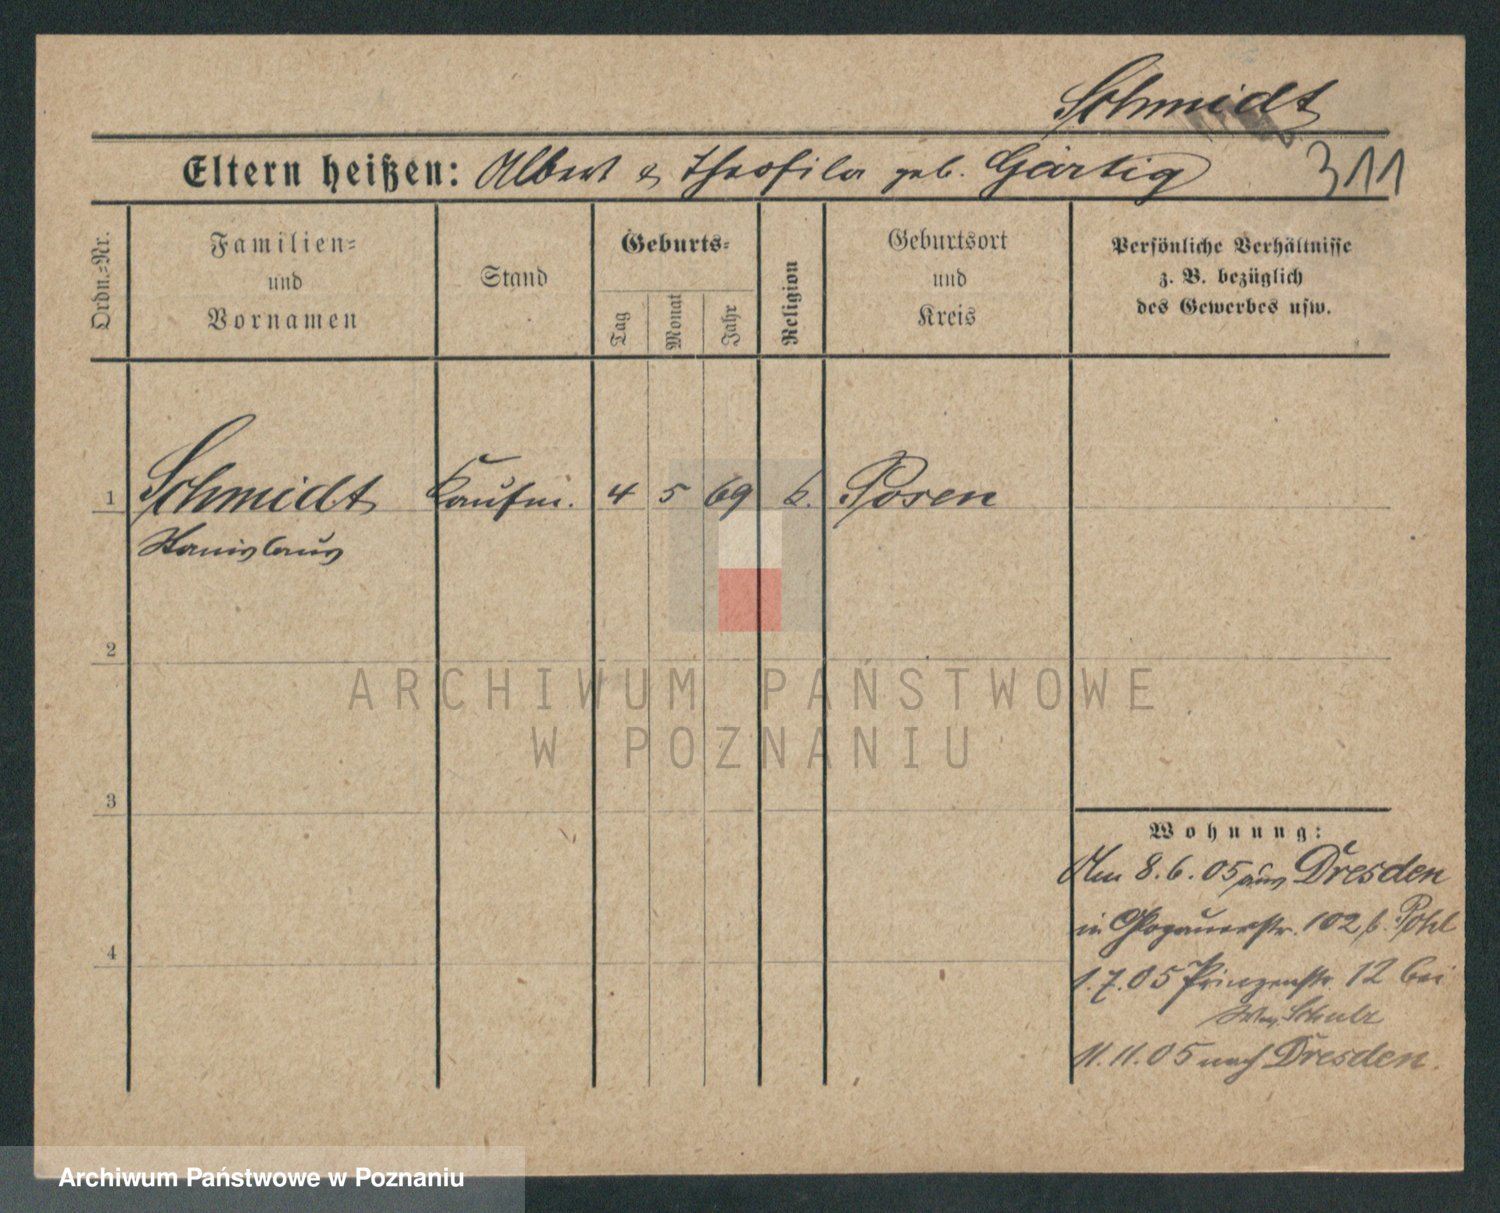 Schmidt
Eltern heißen: Albert & Theofila geb. Gärtig
311
Ordn.-Nr.
Familien-
und
Vornamen
Stand
Geburts-
Tag
Monat
Jahr
Religion
Geburtsort
und
Kreis
Persönliche Verhältnisse
z. B. bezüglich
des Gewerbes usw.
1 Schmidt Kaufm. 4 5 69 k. Posen
Stanislaus
2
ARCHIWUM PAŃSTWOWE
W POZNANIU
3
Wohnung:
Am 8.6.05 aus Dresden
in Glogauerstr. 102 b. Pohl
4
1.7.05 Prinzenstr. 12 bei
Schulz
11.11.05 nach Dresden.
Archiwum Państwowe w Poznaniu